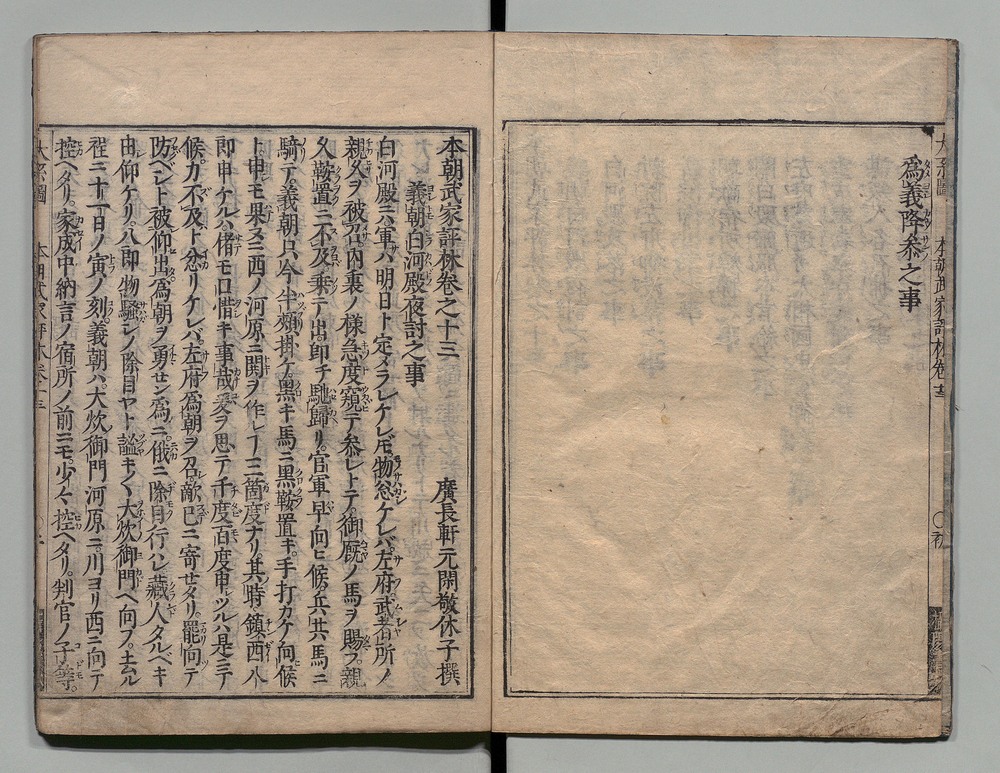 爲義降参之事
本朝武家評林巻之十三
廣長軒元閑敬休子撰
義朝白河殿夜討之事
白河殿ニハ軍ハ明日ト定メラレケレ𪜈物忩ケレバ左府武者所ノ
親久ヲ被召内裏ノ様急度窺テ参レトテ御厩ノ馬ヲ賜フ親
久鞍置ニ不及乗テ出即チ馳歸リ官軍早向ヒ候兵共馬ニ
騎テ義朝只今半頬掛テ黒キ馬ニ黒鞍置キ手打カケ向候
ト申モ果タヌニ西ノ河原ニ閧ヲ作ルヿ三箇度ナリ其時鎮西八
郎申ケルハ偖モ口惜キ事哉爰ヲ思テ千度百度申ツルハ是ニテ
候ゾ力不及ト忿リケレバ左府爲朝ヲ召敵已ニ寄セタリ罷向テ
防ベシト被仰出爲朝ヲ勇せン爲ニ俄ニ除目行ハレ藏人タルベキ
由仰ケリ八郎物騒シノ除目ヤト謐キ〱大炊御門ヘ向フ去ル
程ニ十一日ノ寅ノ刻義朝ハ大炊御門河原ニ川ヨリ西ニ向テ
控ヘタリ家成中納言ノ宿所ノ前ニモ少々控ヘタリ判官ノ子等